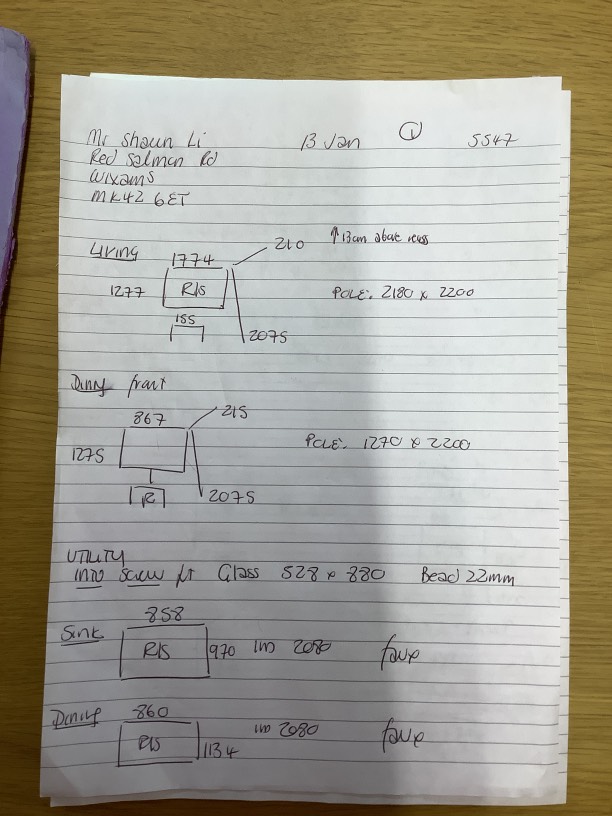 Mr Shaun Li 13 Jan 1 5547
Red Salmon Rd
Wixams
MK42 6ET
Living 1774 210 ↑13cm above recess
1277 R/S POLE: 2180 x 2200
155
2075
Dining front
867 215
1275 POLE: 1270 x 2200
R 2075
UTILITY
INTO Screw fit Glass 528 x 880 Bead 22mm
858
Sink R/S 970 2080 faux
Dining 860
R/S 1134 2080 faux